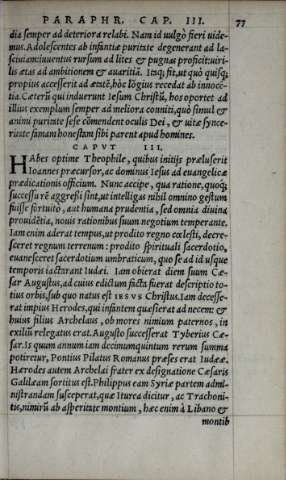 PARAPHR. CAP. III. 77
dia semper ad deteriora relabi. Nam id uulgò fieri uide-
mus. Adolescentes ab infantiæ puritate degenerant ad la-
sciuiam: iuuentus rursum ad lites & pugnas proficit: uiri-
lis ætas ad ambitionem & auaritiā. Itaq; fit, ut quò quisq;
propius accesserit ad ætatē, hòc lōgius recedat ab innocē-
tia. Cæterū qui induerunt Iesum Christū, hos oportet ad
illius exemplum semper ad meliora conniti, quò simul &
animi puritate sese cōmendent oculis Dei, & uitæ synce-
ritate famam honestam sibi parent apud homines.
CAPVT III.
HAbes optime Theophile, quibus initijs præluserit
Ioannes præcursor, ac dominus Iesus ad euangelicæ
prædicationis officium. Nunc accipe, qua ratione, quoq;
successu rē aggressi sint, ut intelligas nihil omnino gestum
fuisse fortuitò, aut humana prudentia, sed omnia diuina
prouidētia, noui rationibus suum negotium temperante.
Iam enim aderat tempus, ut prodito regno cœlesti, decre-
sceret regnum terrenum: prodito spirituali sacerdotio,
euanesceret sacerdotium umbraticum, quo se ad id usque
temporis iactarant Iudæi. Iam obierat diem suum Cæ-
sar Augustus, ad cuius edictum facta fuerat descriptio to-
tius orbis, sub quo natus est IESVS Christus. Iam decesse-
rat impius Herodes, qui infantem quæsierat ad necem: &
huius filius Archelaus, ob mores nimium paternos, in
exiliū relegatus erat. Augusto successerat Tyberius Cæ-
sar. Is quum annum iam decimumquintum rerum summa
potiretur, Pontius Pilatus Romanus præses erat Iudææ.
Herodes autem Archelai frater ex designatione Cæsaris
Galilæam sortitus est. Philippus eam Syriæ partem admi-
nistrandam susceperat, quæ Iturea dicitur, ac Trachoni-
tis, nimirū ab asperitate montium, hæc enim à Libano &
montib